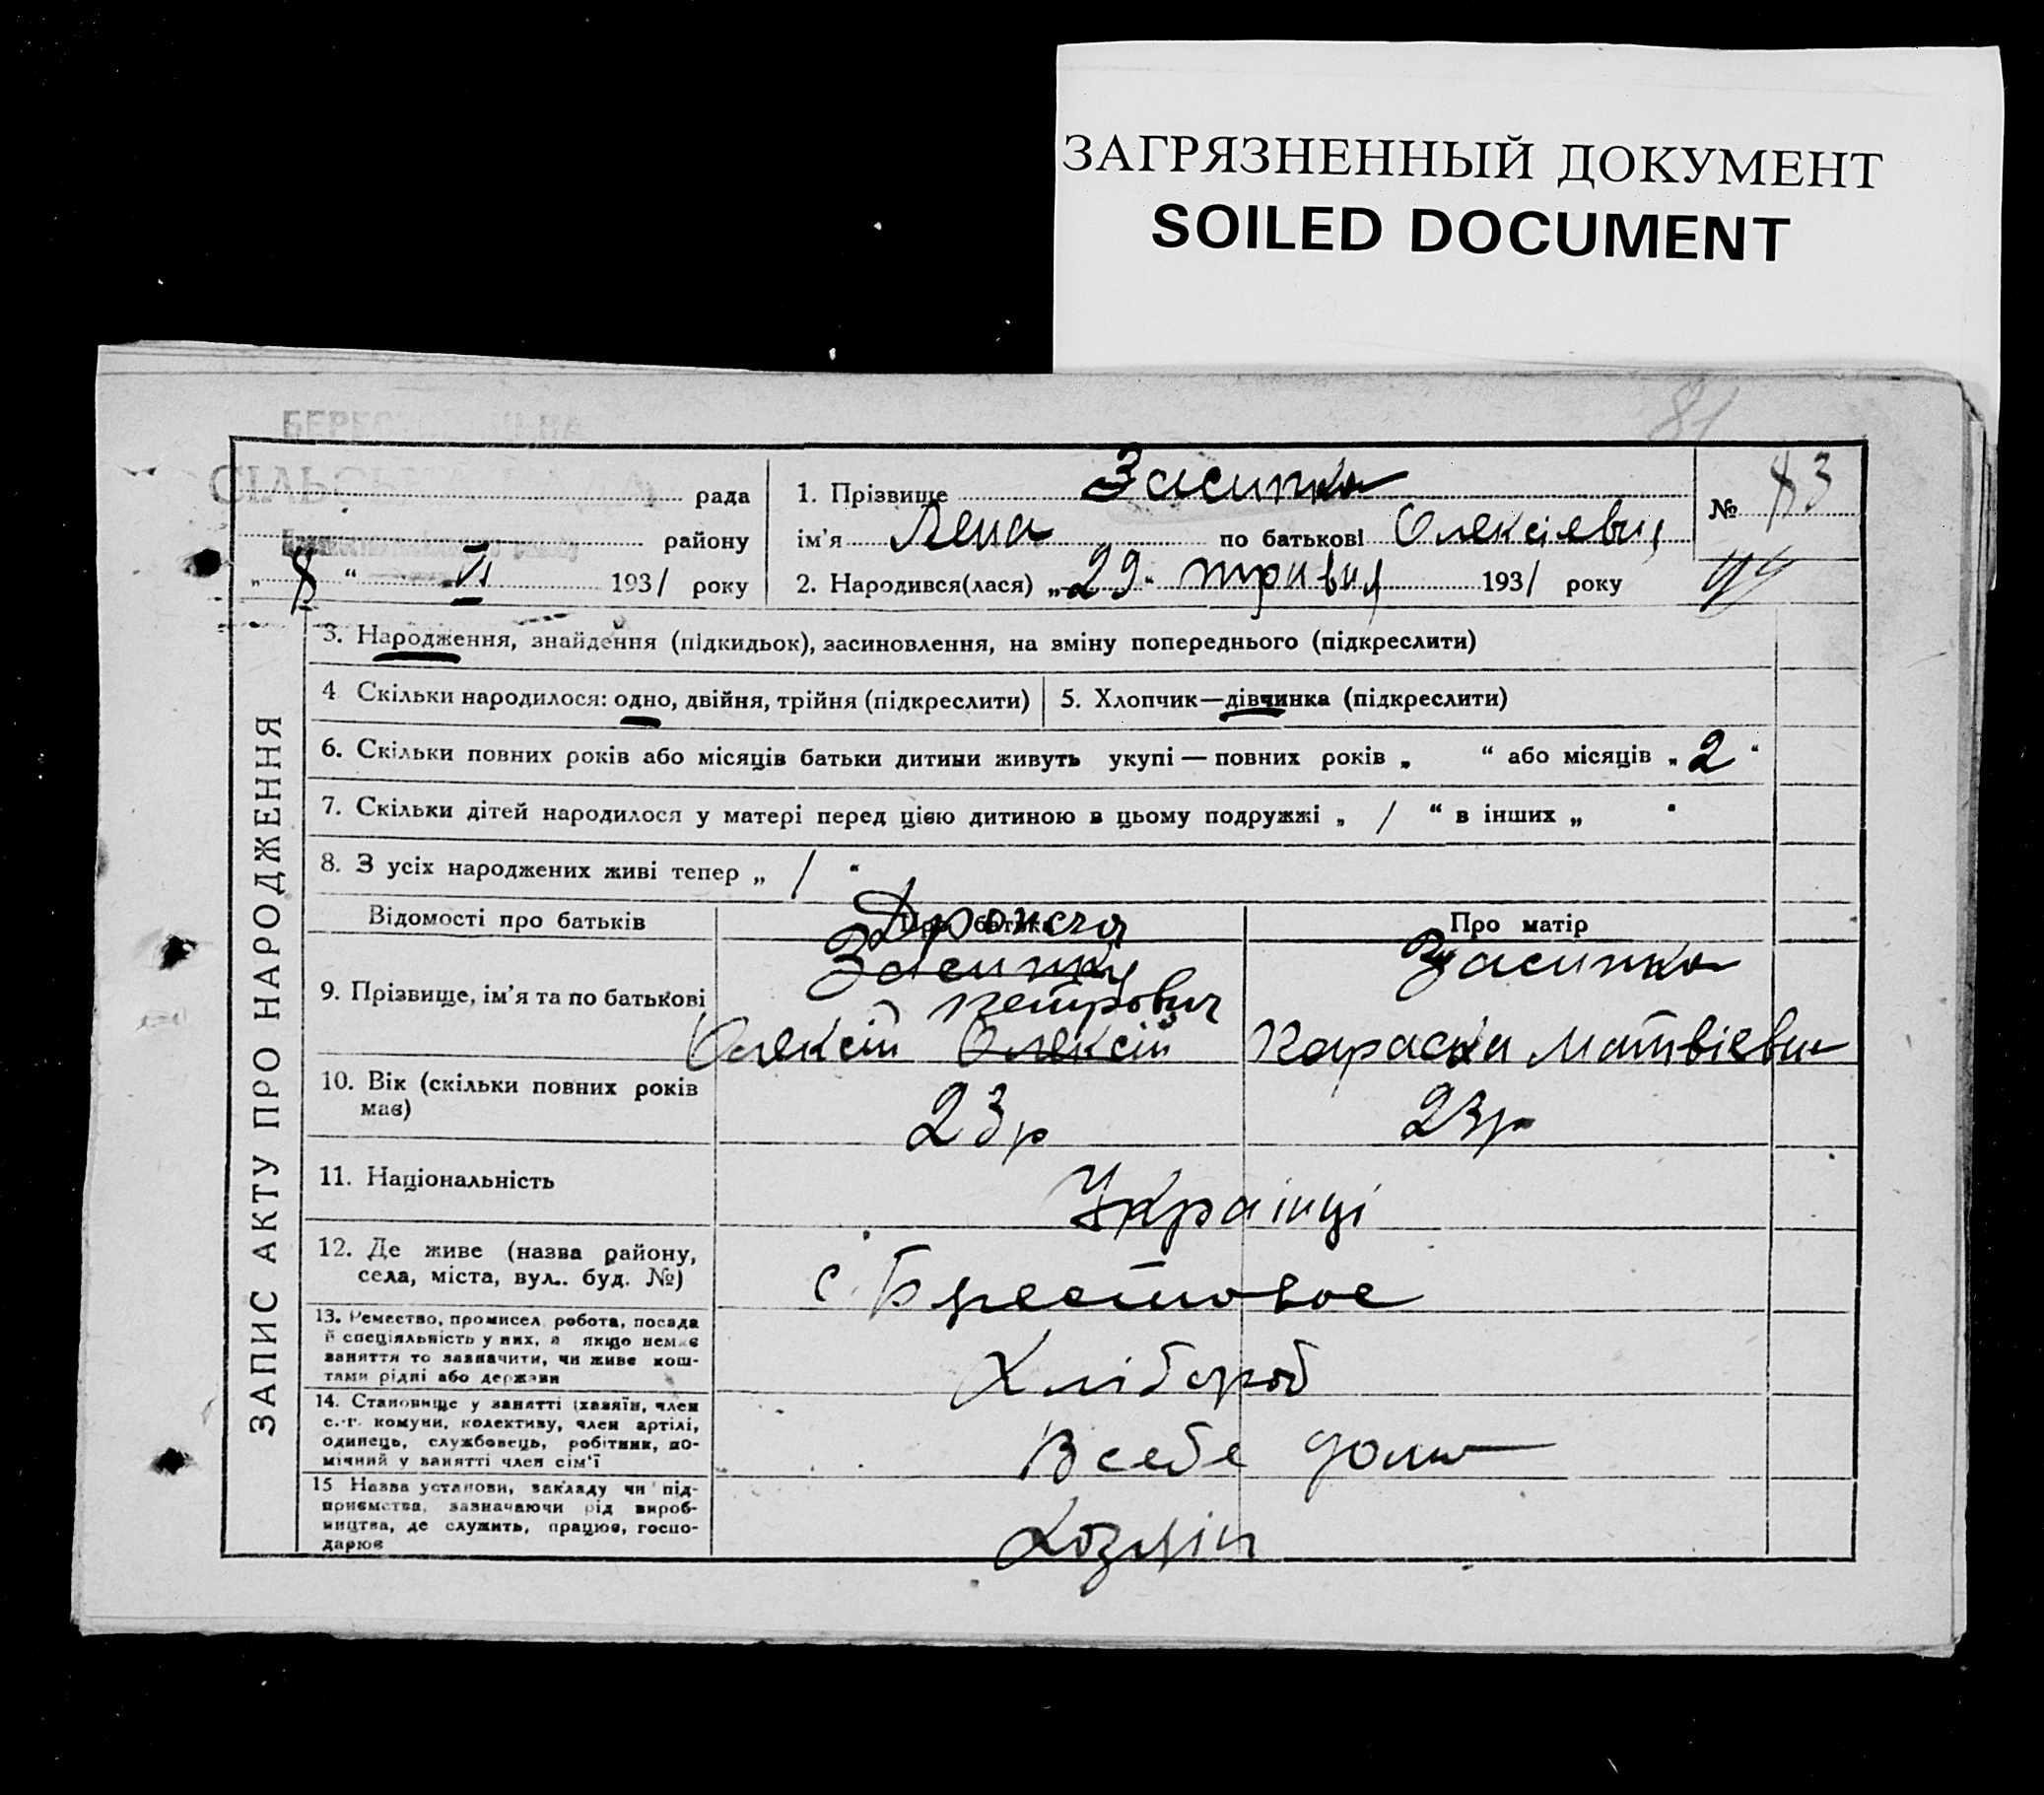 ЗАГРЯЗНЕННЫЙ ДОКУМЕНТ
SOILED DOCUMENT
81
рада
району
„ 8 “ VI 1931 року
1. Прізвище Засипка
ім'я Лена по батькові Олексієвна
2. Народився(лася) „29“ травня 1931 року
№ 83
ЗАПИС АКТУ ПРО НАРОДЖЕННЯ
3. Народження, знайдення (підкидьок), засиновлення, на зміну попереднього (підкреслити)
4 Скільки народилося: одно, двійня, трійня (підкреслити)
5. Хлопчик—дівчинка (підкреслити)
6. Скільки повних років або місяців батьки дитини живуть укупі — повних років „ “ або місяців „ 2 “
7. Скільки дітей народилося у матері перед цією дитиною в цьому подружжі „ / “ в інших „ “
8. З усіх народжених живі тепер „ / “
Відомості про батьків
Про батька
Про матір
9. Прізвище, ім'я та по батькові
Засипка
Петрович
Олексій Олексій
Засипка
Параска Матвієвна
10. Вік (скільки повних років має)
23р
23р
11. Національність
Українці
12. Де живе (назва району, села, міста, вул.. буд. №)
с.
13. Ремество, промисел, робота, посада й спеціяльність у них, а якщо немає заняття то зазначити, чи живе коштами рідні або держави
Хлібороб
14. Становище у занятті (хазяїн, член с.-г. комуни, колективу, член артілі, одинець, службовець, робітник, помічний у занятті член сім'ї
В себе дома
15 Назва установи, закладу чи підприємства, зазначаючи рід виробництва, де служить, працює, господарює